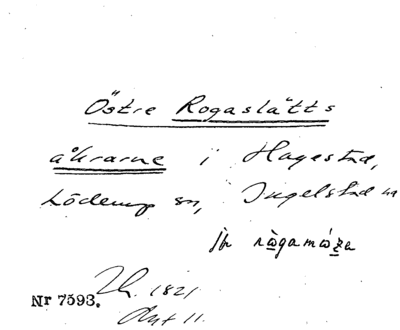 Östre Rogaslätts
åkrarne i Hagestad,
Löderup sn, Ingelstad hd
jfr rògamòsa
Nr 7593. Uh. 1821
Akt 11.